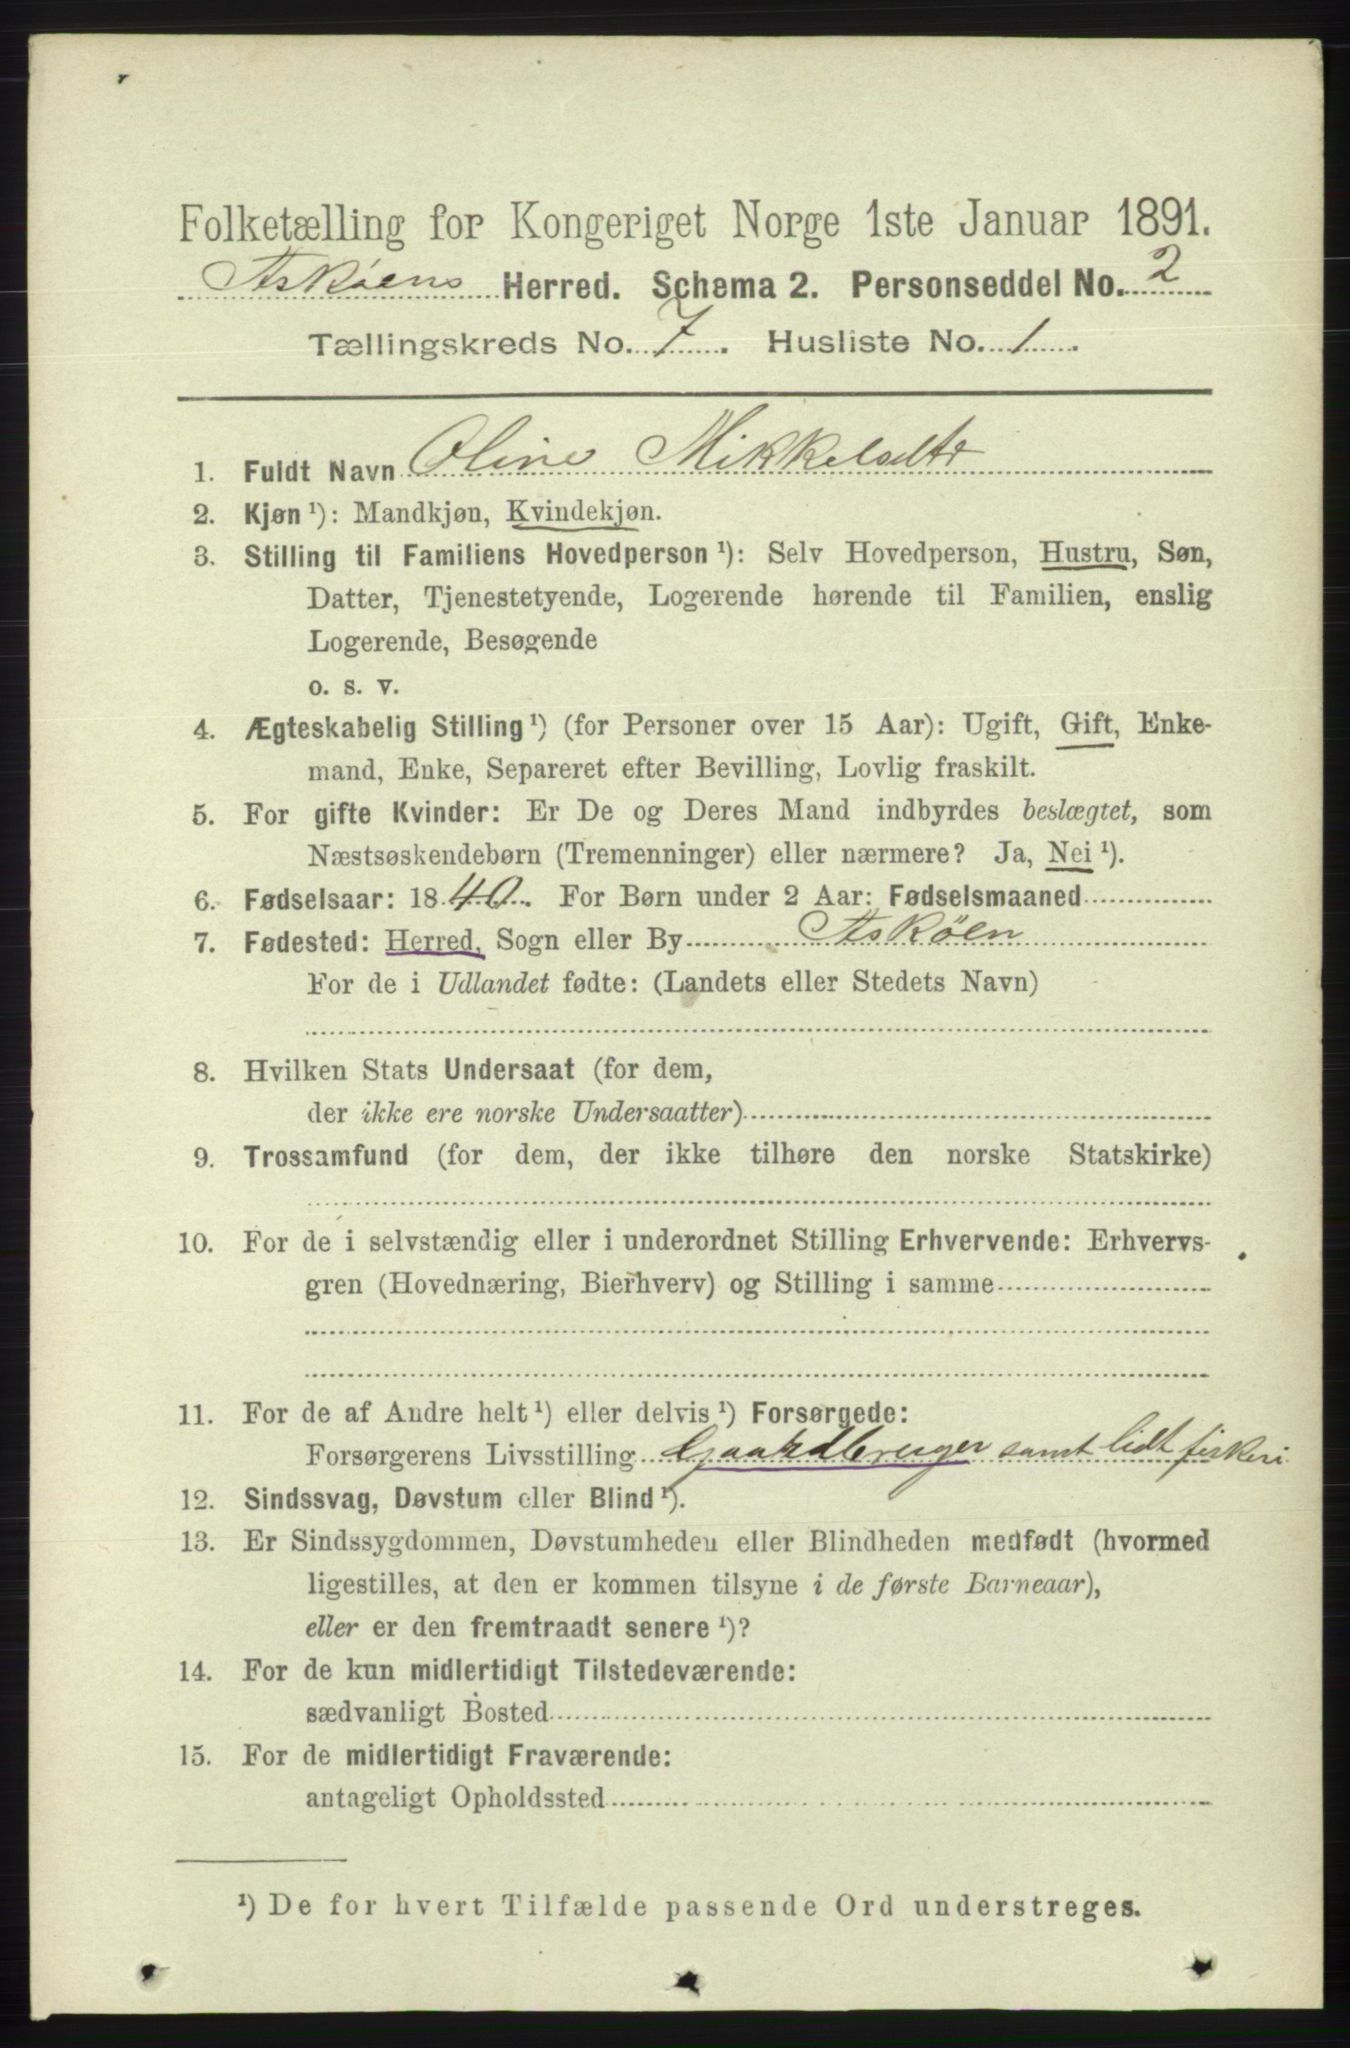 Folketælling for Kongeriget Norge 1ste Januar 1891.
Askøens Herred. Schema 2. Personseddel No. 2
Tællingskreds No. 7. Husliste No. 1.
1. Fuldt Navn Oline Mikkelsdtr
2. Kjøn ¹): Mandkjøn, Kvindekjøn.
3. Stilling til Familiens Hovedperson ¹): Selv Hovedperson, Hustru, Søn,
Datter, Tjenestetyende, Logerende hørende til Familien, enslig
Logerende, Besøgende
o. s. v.
4. Ægteskabelig Stilling ¹) (for Personer over 15 Aar): Ugift, Gift, Enke-
mand, Enke, Separeret efter Bevilling, Lovlig fraskilt.
5. For gifte Kvinder: Er De og Deres Mand indbyrdes beslægtet, som
Næstsøskendebørn (Tremenninger) eller nærmere? Ja, Nei ¹).
6. Fødselsaar: 1840. For Børn under 2 Aar: Fødselsmaaned
7. Fødested: Herred, Sogn eller By Askøen
For de i Udlandet fødte: (Landets eller Stedets Navn)
8. Hvilken Stats Undersaat (for dem,
der ikke ere norske Undersaatter)
9. Trossamfund (for dem, der ikke tilhøre den norske Statskirke)
10. For de i selvstændig eller i underordnet Stilling Erhvervende: Erhvervs-
gren (Hovednæring, Bierhverv) og Stilling i samme
11. For de af Andre helt ¹) eller delvis ¹) Forsørgede:
Forsørgerens Livsstilling Gaardbruger samt lidt fiskeri
12. Sindssvag, Døvstum eller Blind ¹).
13. Er Sindssygdommen, Døvstumheden eller Blindheden medfødt (hvormed
ligestilles, at den er kommen tilsyne i de første Barneaar),
eller er den fremtraadt senere ¹)?
14. For de kun midlertidigt Tilstedeværende:
sædvanligt Bosted
15. For de midlertidigt Fraværende:
antageligt Opholdssted
¹) De for hvert Tilfælde passende Ord understreges.